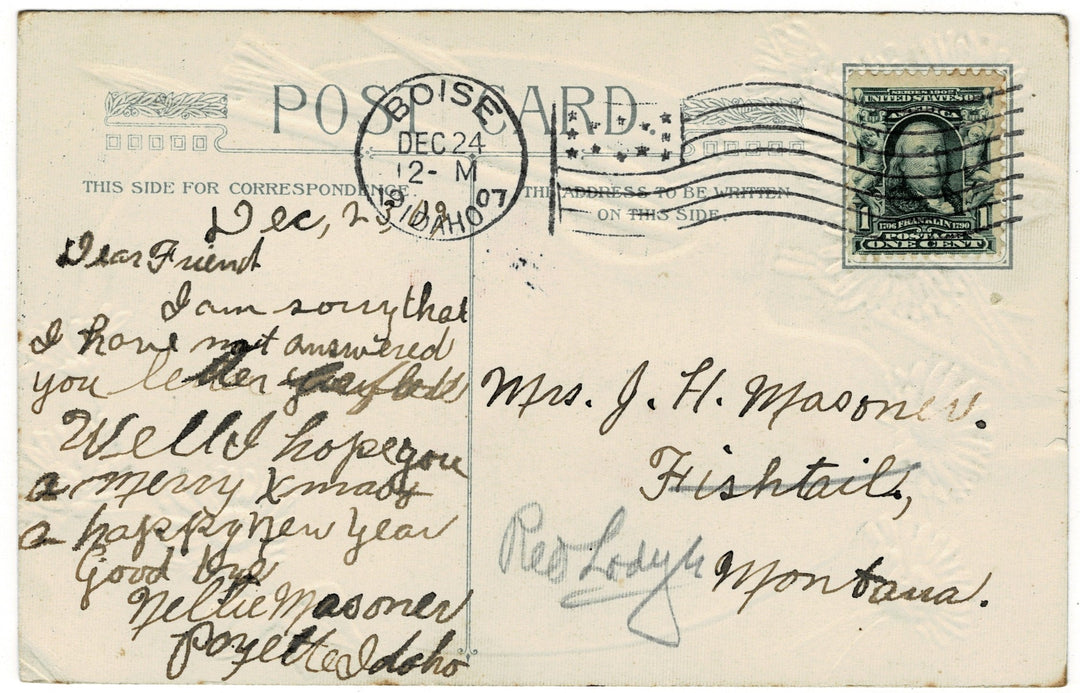 POST CARD.
BOISE
DEC 24
12- M
1907
IDAHO
THIS SIDE FOR CORRESPONDENCE.
THE ADDRESS TO BE WRITTEN
ON THIS SIDE.
SERIES 1902
UNITED STATES OF
AMERICA
1 1706 FRANKLIN 1790 1
POSTAGE
ONE CENT
Dec, 23, 19
Dear Friend
I am sorry that
I have not answered
you letter
Well I hope you
a merry Xmas
a happy New Year
Good bye
Nellie Masoner
Payette Idaho
Mrs. J. H. Masoner.
Fishtail,
Red Lodge
Montana.